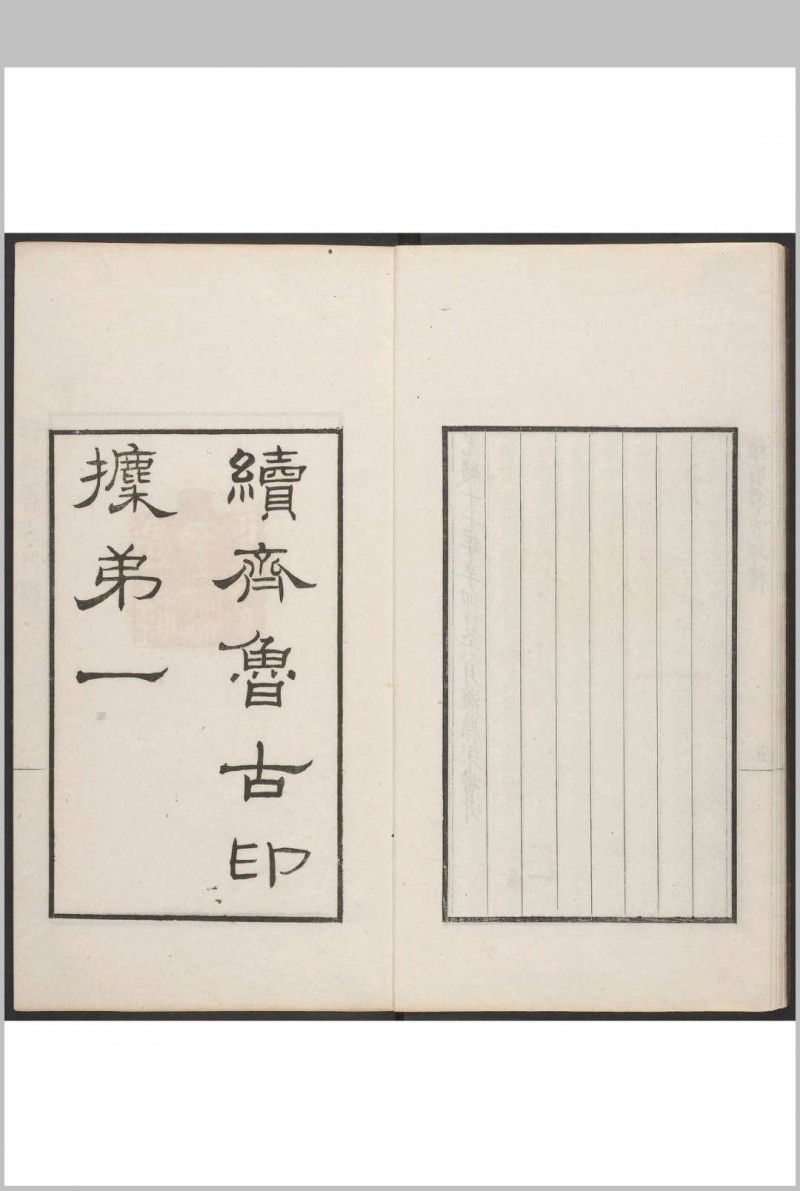 續齊魯古印
攈弟一